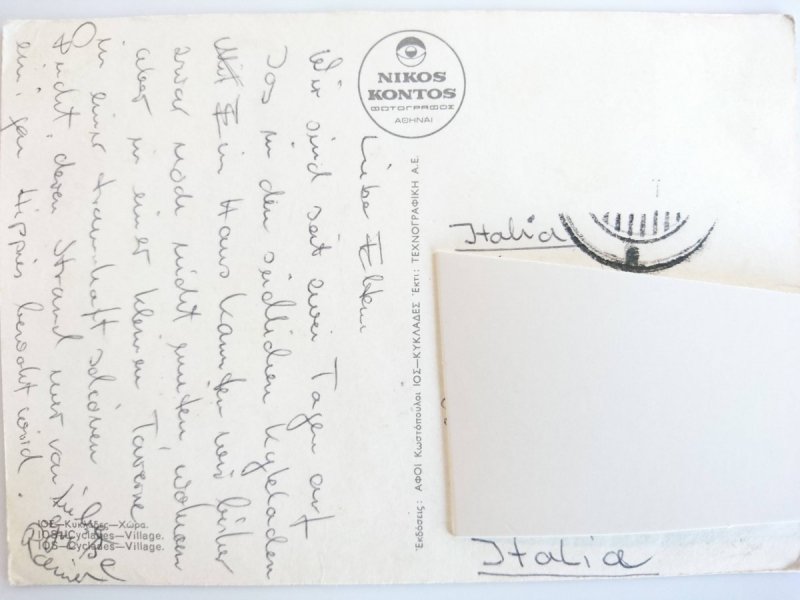 NIKOS
KONTOS
ΦΩΤΟΓΡΑΦΟΣ
ΑΘΗΝΑΙ
Liebe Eltern
Wir sind seit zwei Tagen auf
Jos in den südlichen Kykladen
Ein Haus konnten wir bisher
zwar noch nicht mieten, wohnen
aber in einer kleinen Taverne
in einer traumhaft schönen
Bucht, deren Strand nur von
ein par Hippies bewohnt wird.
Rainer
ΙΟΣ—Κυκλάδες—Χώρα.
IOS—Cyclades—Village.
IOS—Cyclades—Village.
Ἐκδόσεις: ΑΦΟΙ Κωστόπουλοι ΙΟΣ—ΚΥΚΛΑΔΕΣ Ἐκτ: ΤΕΧΝΟΓΡΑΦΙΚΗ Α.Ε.
Italia
Italia